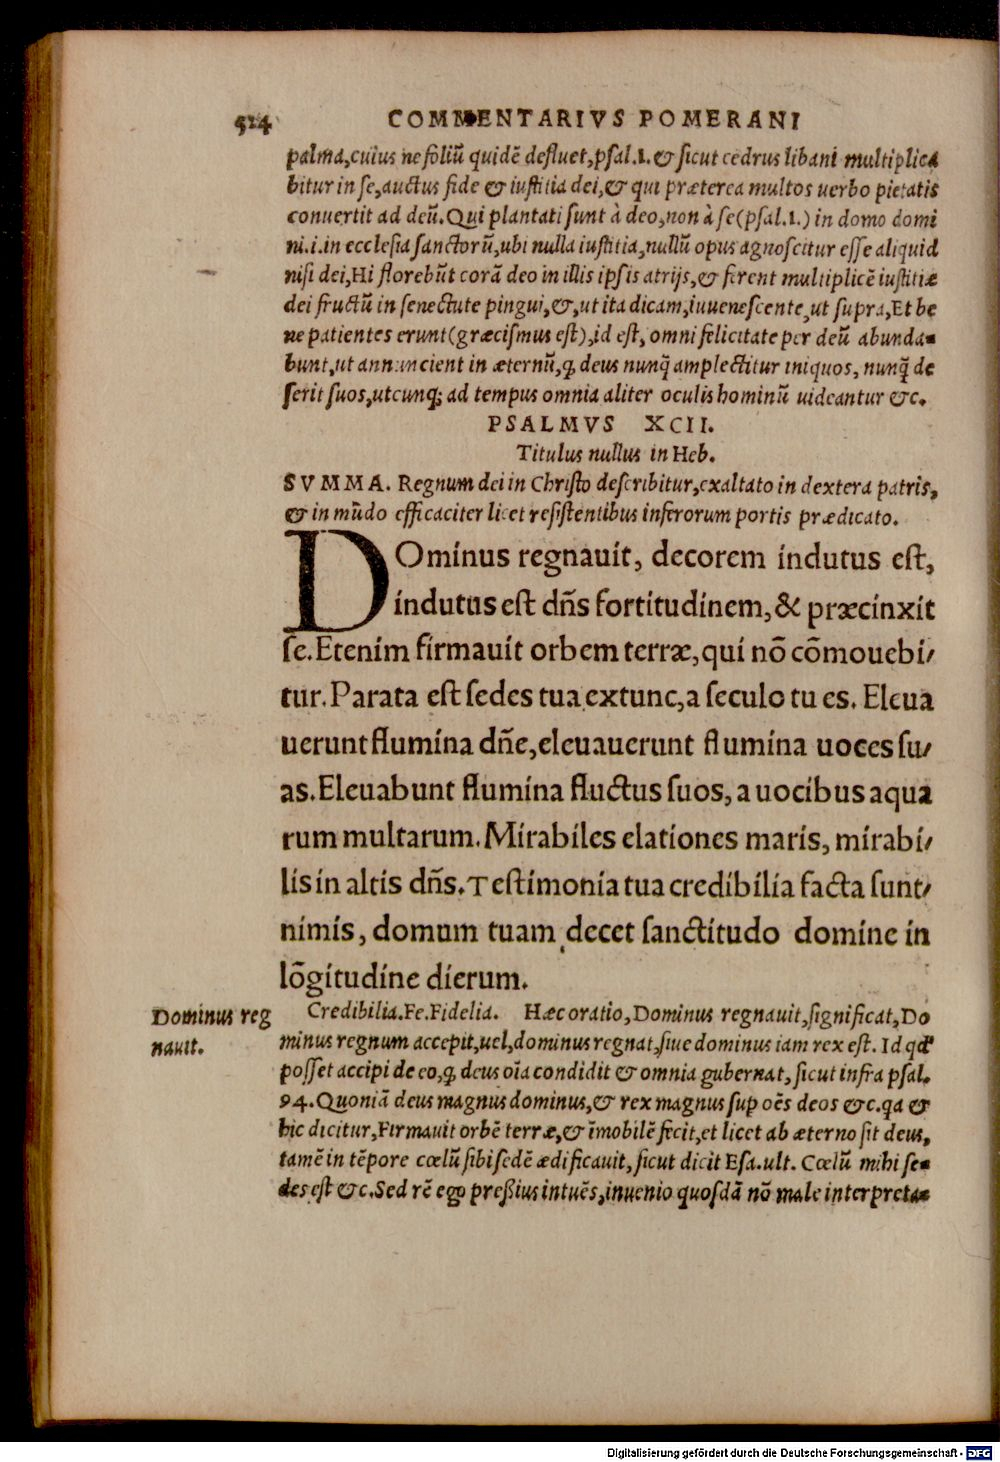 524 COMMENTARIVS POMERANI
palma,cuius ne foliũ quidẽ defluet,psal.1.& sicut cedrus libani multiplica
bitur in se,auctus fide & iustitia dei,& qui præterea multos uerbo pietatis
conuertit ad deũ.Qui plantati sunt à deo,non à se(psal.1.) in domo domi
ni.i.in ecclesia sanctorũ,ubi nulla iustitia,nullũ opus agnoscitur esse aliquid
nisi dei,Hi florebũt corã deo in illis ipsis atrijs,& ferent multiplicẽ iustitiæ
dei fructũ in senectute pingui,&,ut ita dicam,iuuenescente,ut supra,Et be
ne patientes erunt(græcismus est),id est, omni felicitate per deũ abunda-
bunt,ut annuncient in æternũ,ꝙ deus nunꝗ̃ amplectitur iniquos, nunꝗ̃ de
serit suos,utcunqꝫ ad tempus omnia aliter oculis hominũ uideantur &c.
PSALMVS XCII.
Titulus nullus in Heb.
SVMMA. Regnum dei in Christo describitur,exaltato in dextera patris,
& in mũdo efficaciter licet resistentibus inferorum portis prædicato.
DOminus regnauit, decorem indutus est,
indutus est dñs fortitudinem,& præcinxit
se.Etenim firmauit orbem terræ,qui nõ cõmouebi/
tur.Parata est sedes tua extunc,a seculo tu es. Eleua
uerunt flumina dñe,eleuauerunt flumina uoces su/
as.Eleuabunt flumina fluctus suos, a uocibus aqua
rum multarum.Mirabiles elationes maris, mirabi/
lis in altis dñs.Testimonia tua credibilia facta sunt/
nimis, domum tuam decet sanctitudo domine in
lõgitudine dierum.
Dominus reg
nauit.
Credibilia.Fe.Fidelia. Hæc oratio,Dominus regnauit,significat,Do
minus regnum accepit,uel,dominus regnat,siue dominus iam rex est. Id qď
posset accipi de eo,ꝙ deus oĩa condidit & omnia gubernat, sicut infra psal.
94.Quoniã deus magnus dominus,& rex magnus sup oẽs deos &c.qa &
hic dicitur,Firmauit orbẽ terræ,& ĩmobilẽ fecit,et licet ab æterno sit deus,
tamẽ in tẽpore cœlũ sibi sedẽ ædificauit, sicut dicit Esa.ult. Cœlũ mihi se-
des est &c.Sed rẽ ego preßius intuẽs,inuenio quosdã nõ male interpreta-
Digitalisierung gefördert durch die Deutsche Forschungsgemeinschaft - DFG